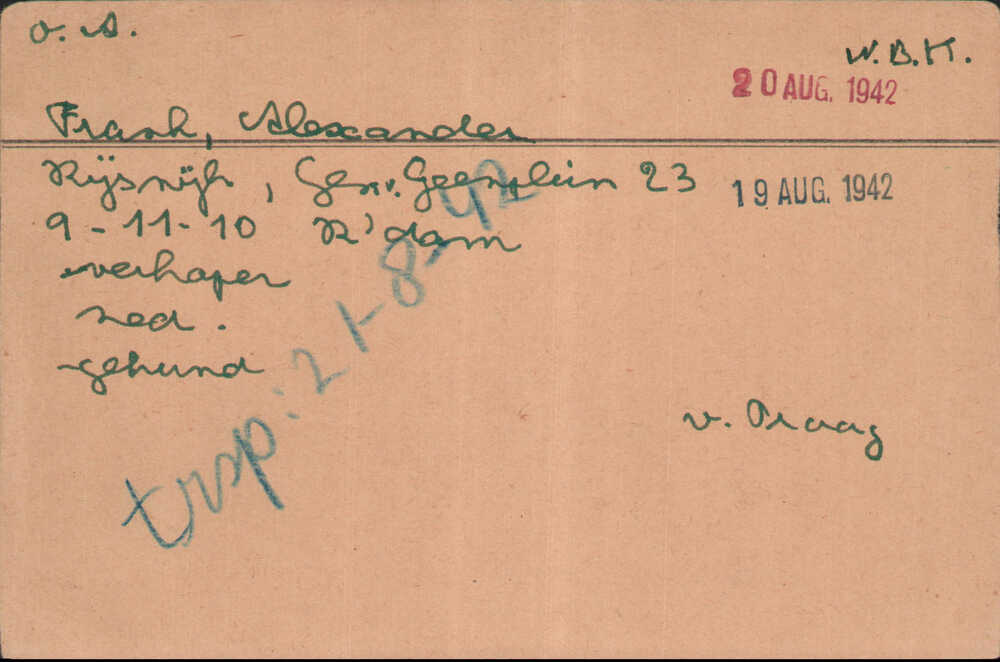 o. A.
W.B.K.
20 AUG. 1942
Frank, Alexander
Rijswijk, Gen. v. Geenplein 23
19 AUG. 1942
9-11-10 R'dam
verkoper
ned.
gehuwd
v. Praag
trsp: 21-8-42